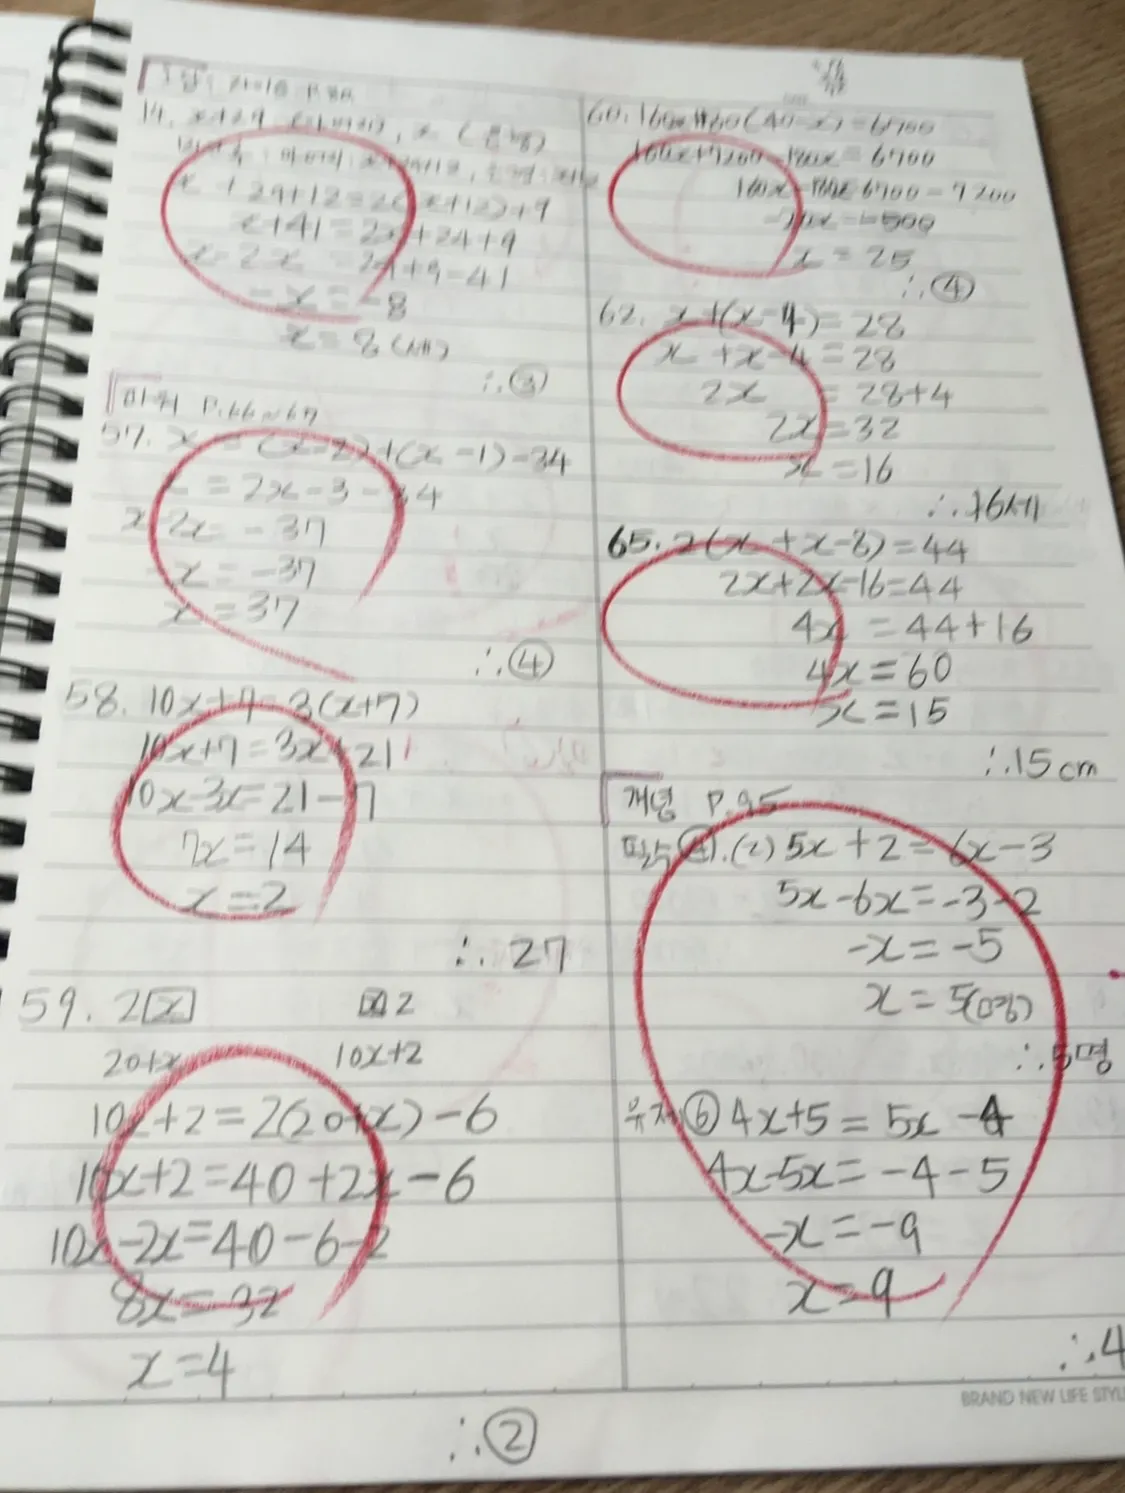 14.
x+29+12=2(x+12)+9
x+41=2x+24+9
x-2x=24+9-41
-x=-8
x=8(세)
∴③
P.66~67
57. x=(x-2)+(x-1)-34
x=2x-3-34
x-2x=-37
-x=-37
x=37
∴④
58. 10x+7=3(x+7)
10x+7=3x+21
10x-3x=21-7
7x=14
x=2
∴27
59. 2x x2
20+x 10x+2
10x+2=2(20+x)-6
10x+2=40+2x-6
10x-2x=40-6-2
8x=32
x=4
∴②
60. (40-x)=6700
=6700
6700-7200
-20x=-500
x=25
∴④
62. x+(x-4)=28
x+x-4=28
2x=28+4
2x=32
x=16
∴16세
65. 2(x+x-8)=44
2x+2x-16=44
4x=44+16
4x=60
x=15
∴15cm
개념 P.95
필수④.(2) 5x+2=6x-3
5x-6x=-3-2
-x=-5
x=5(명)
∴5명
유제⑥ 4x+5=5x-4
4x-5x=-4-5
-x=-9
x=9
∴4
BRAND NEW LIFE STYL